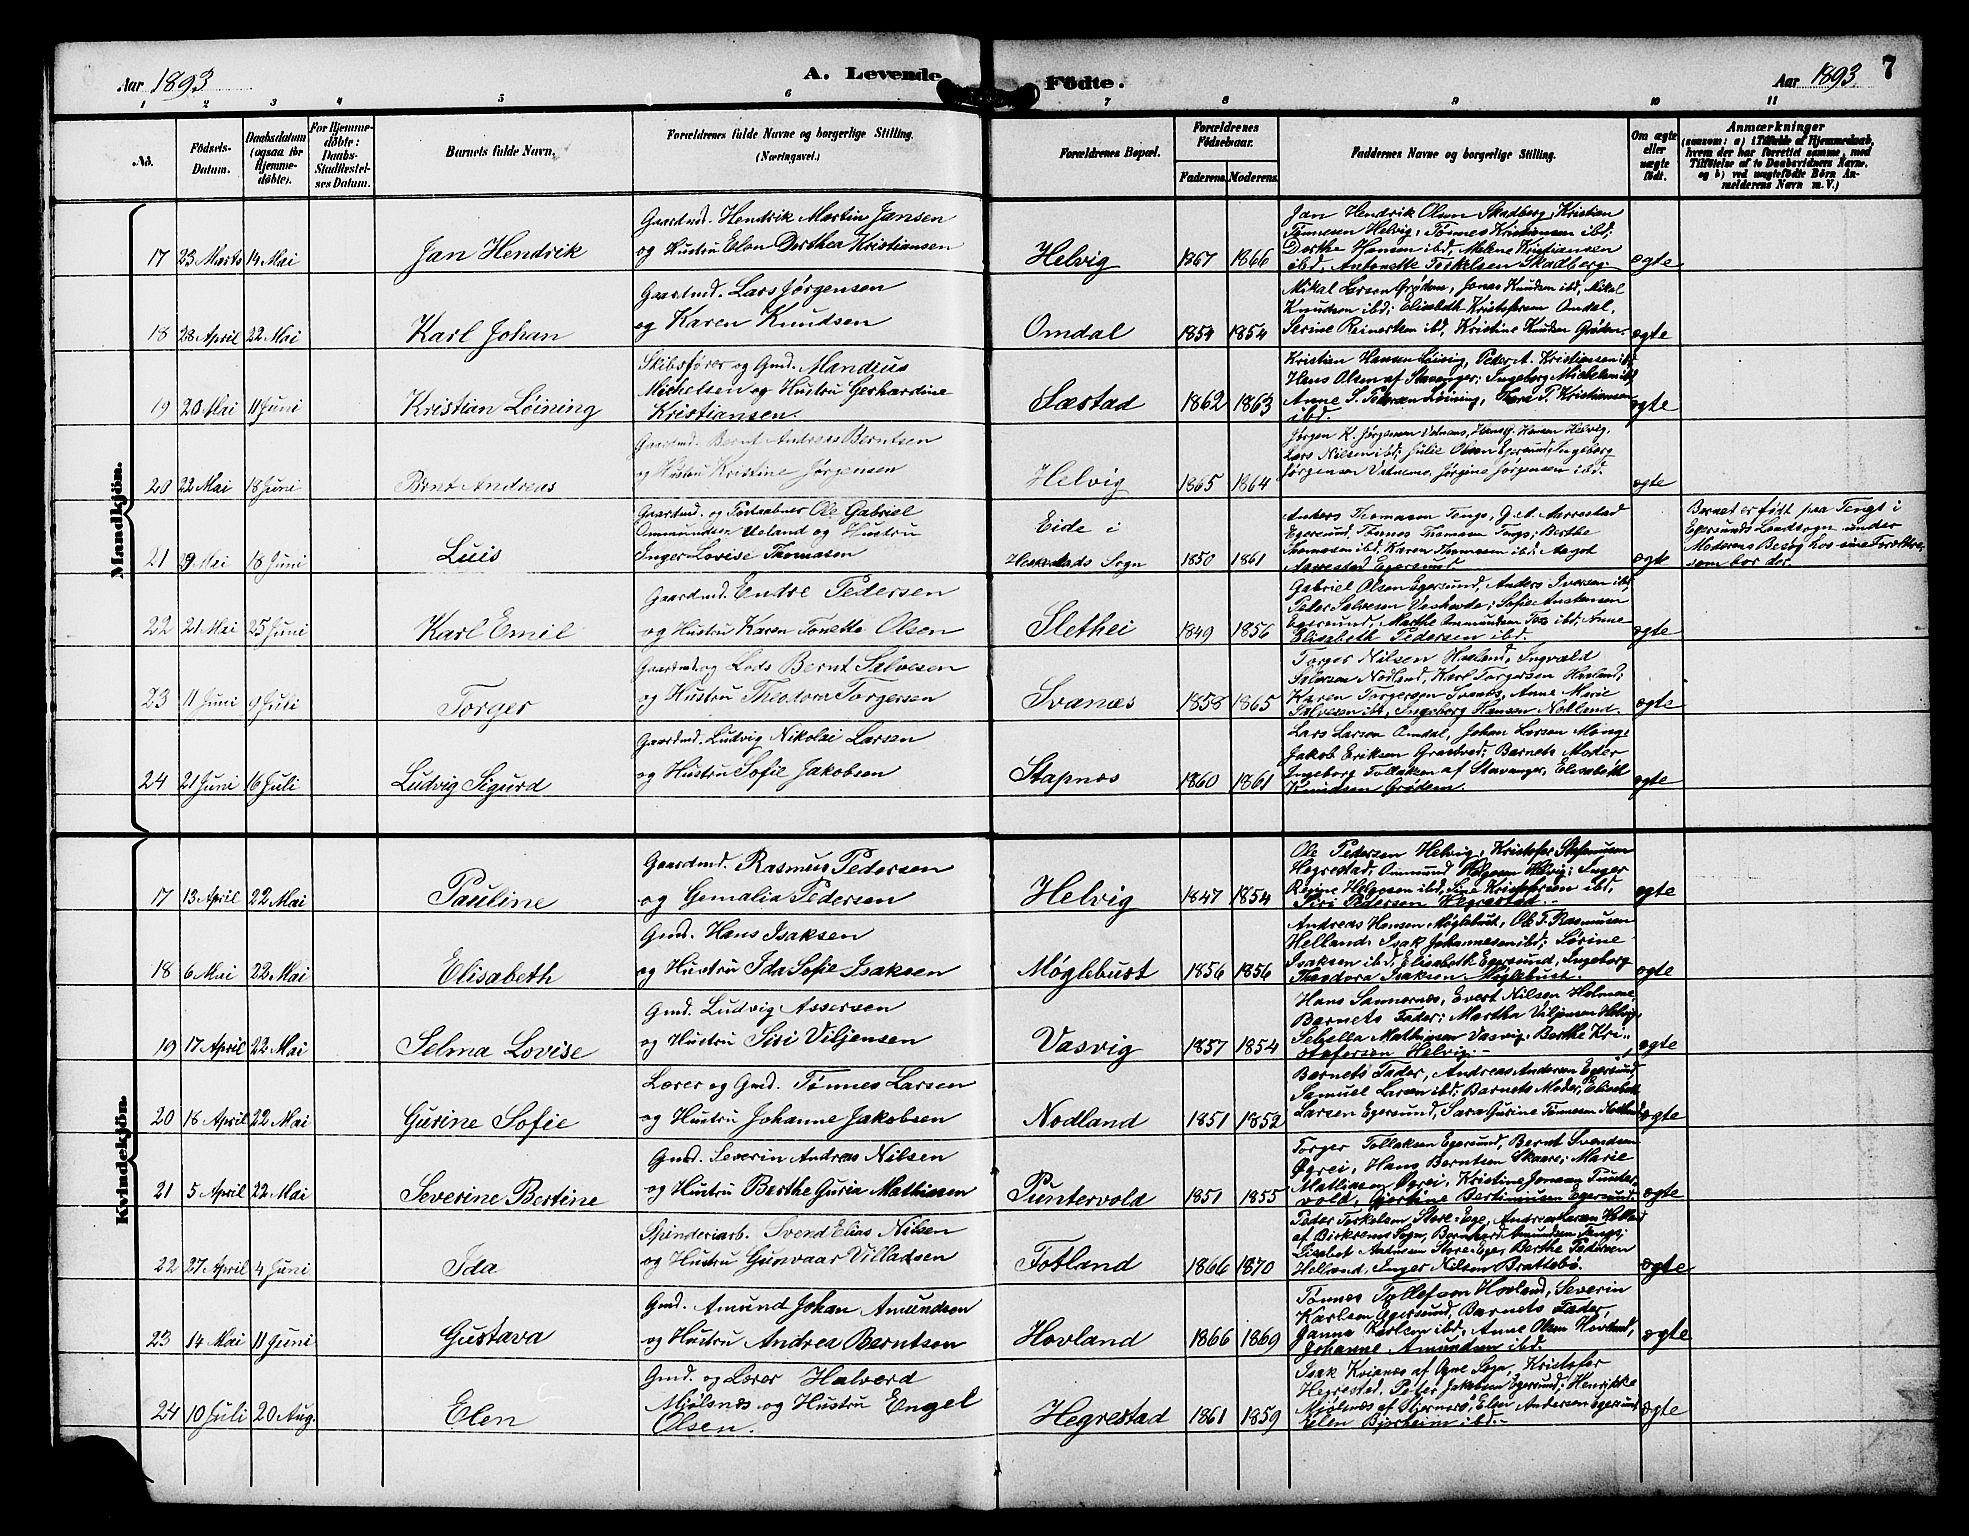 Aar 1893 A. Levende Födte. Aar 1893. 7
1 2 3 4 5 6 7 8 9 10 11
No. Födsels-Datum. Daabsdatum (ogsaa for Hjemme-döbte). For Hjemme-döbte: Daabs-Stadfæstel-ses Datum. Barnets fulde Navn. Forældrenes fulde Navne og borgerlige Stilling. (Næringsvei.) Forældrenes Bopæl. Forældrenes Födselsaar. Faderens. Moderens. Faddernes Navne og borgerlige Stilling. Om ægte eller uægte födt. Anmærkninger (saasom: a) i Tilfælde af Hjemmedaab, hvem der har forrettet samme, med Tilföielse af to Daabsvidners Navne, og b) ved uægtefödte Börn An-melderens Navn m. V.)
Mandkjön.
17 23 Marts 14 Mai Jan Hendrik Gaardmd. Hendrik Martin Jansen
og Hustru Elen Dorthea Kristiansen Helvig 1867 1866 Jan Hendrik Olsen Skadberg, Kristian
Tønnesen Helvig, Tønnes Kristiansen ibd,
Dorthe Hansen ibd, Malene Kristiansen
ibd, Antonette Torkelsen Skadberg. ægte
18 28 April 22 Mai Karl Johan Gaardmd. Lars Jørgensen
og Karen Knudsen Omdal 1854 1854 Mikal Larsen Grødem, Jonas Knudsen ibd, Mikal
Knudsen ibd; Elisabeth Kristofersen Omdal,
Serine Reinertsen ibd, Kristine Knudsen Grødem. ægte
19 20 Mai 11 Juni Kristian Løining Skibsfører og Gmd. Mandius
Michelsen og Hustru Gerhardine
Kristiansen. Sæstad 1862 1863 Kristian Hansen Løining, Peder A. Kristiansen ibd,
Hans Olsen af Stavanger; Ingeborg Michelsen ibd,
Anne S. Pedersen Løining, P. Kristiansen
ibd. ægte
20 22 Mai 18 Juni Bernt Andreas Gaardmd. Bernt Andreas Berntsen
og Hustru Kristine Jørgensen Helvig 1865 1864 Jørgen K. Jørgensen, Hansen Helvig,
Lars Nilsen ibd; Julie Olsen Egersund, Ingeborg
Jørgensen, Jørgine Jørgensen ibd. ægte
21 29 Mai 18 Juni Luis Gaardmd. og Postaabner Ole Gabriel
Ommundsen Ueland og Hustru
Inger Lovise Thomasen Eide i
Heskestads Sogn 1850 1861 Anders Thomasen Tengs, G. A. Aarrestad
Egersund, Tønnes Thomasen Tengs; Berthe
Thomasen ibd, Karen Thomasen ibd, Aasgot
Aarrestad Egersund ægte Barnet er født paa Tengs i
Egersunds Landsogn under
Moderens Besøg hos sine Forældre,
som bor der.
22 21 Mai 25 Juni Karl Emil Gaardmd. Endre Pedersen
og Hustru Karen Tonette Olsen Slethei 1849 1856 Gabriel Olsen Egersund, Anders Iversen ibd,
Peder Salvesen; Sofie Austensen
Egersund, Marthe Ommundsen ibd, Anne
Elisabeth Pedersen ibd. ægte
23 11 Juni 9 Juli Torger Gaardmd. og Lods Bernt Salvesen
og Hustru Theodora Torgersen Svanæs 1858 1865 Torger Nilsen Havland, Ingvald
Salvesen Nodland, Karl Torgersen Havland,
Karen Torgersen Svanæs, Anne Marie
Salvesen ibd, Ingeborg Hansen Nodland. ægte
24 21 Juni 16 Juli Ludvig Sigurd Gaardmd. Ludvig Nikolai Larsen
og Hustru Sofie Jakobsen Stapnæs 1860 1861 Lars Larsen Omdal, Johan Larsen Mong,
Jakob Eriksen; Barnets Moder
Ingeborg Tollaksen af Stavanger, Elisabeth
Knudsen Grødem. ægte
Kvindekjön.
17 13 April 22 Mai Pauline Gaardmd. Rasmus Pedersen
og Gemalia Pedersen Helvig 1847 1854 Ole Pedersen Helvig, Kristofer Stefanusen
Hegrestad, Ommund Helgesen Helvig; Inger
Regine Helgesen ibd, Sine Kristofersen ibd,
Siri Pedersen Hegrestad. ægte
18 6 Mai 22 Mai Elisabeth Gmd. Hans Isaksen
og Hustru Ida Sofie Isaksen Møglebust 1856 1856 Andreas Hansen Møglebust, Ole T. Rasmusen
Helland, Isak Johannesen ibd; Sørine
Isaksen ibd, Elisabeth Egersund, Ingeborg
Theodora Isaksen Møglebust. ægte
19 17 April 22 Mai Selma Lovise Gmd. Ludvig Assersen
og Hustru Siri Viljensen Vasvig 1857 1854 Hans Sannarnæs, Evert Nilsen,
Barnets Fader; Martha Viljensen Helvig,
Sebella Mathiasen Vasvig, Berthe Kri-
stofersen Helvig. ægte
20 18 April 22 Mai Gurine Sofie Lærer og Gmd. Tønnes Larsen
og Hustru Johanne Jakobsen Nodland 1851 1852 Barnets Fader, Andreas Andersen Egersund,
Samuel Larsen ibd; Barnets Moder, Elisabeth
Larsen Egersund, Sara Gurine Tønnesen Nodland ægte
21 5 April 22 Mai Severine Bertine Gmd. Severin Andreas Nilsen
og Hustru Berthe Guria Mathiasen Puntervold 1851 1855 Torger Tollaksen Egersund, Bernt Svendsen
Øgrei, Hans Berntsen Skaare; Marie
Mathiasen Øgrei, Kristine Jonsen Punter-
vold, Gjertine Bertinusen Egersund. ægte
22 27 April 4 Juni Ida Spinderiarb. Svend Elias Nilsen
og Hustru Gunvaar Villadsen Fotland 1866 1870 Peder Torkelsen Store-Ege, Andreas Larsen Helland
af Birkrems Sogn, Bernhard Amundsen Tengs;
Lisabet Store-Ege, Berthe Pedersen
Helland, Inger Nilsen Brattebø. ægte
23 14 Mai 11 Juni Gustava Gmd. Amund Johan Amundsen
og Hustru Andrea Berntsen Hovland 1866 1869 Tønnes Tollefsen Hovland, Severin
Karlsen Egersund, Barnets Fader,
Janna Karlsen ibd, Anne Olsen Hovland,
Johanne Amundsen ibd. ægte
24 10 Juli 20 Aug. Elen Gmd. og Lærer Halvord
Mjølsnæs og Hustru Engel
Olsen. Hegrestad 1861 1859 Isak af Ogne Sogn, Kristofer
Hegrestad, Peter Jakobsen Egersund; Henrikke
Mjølsnæs af Stjernarø, Elen Andersen Egersund,
Elen Birkeim ibd. ægte